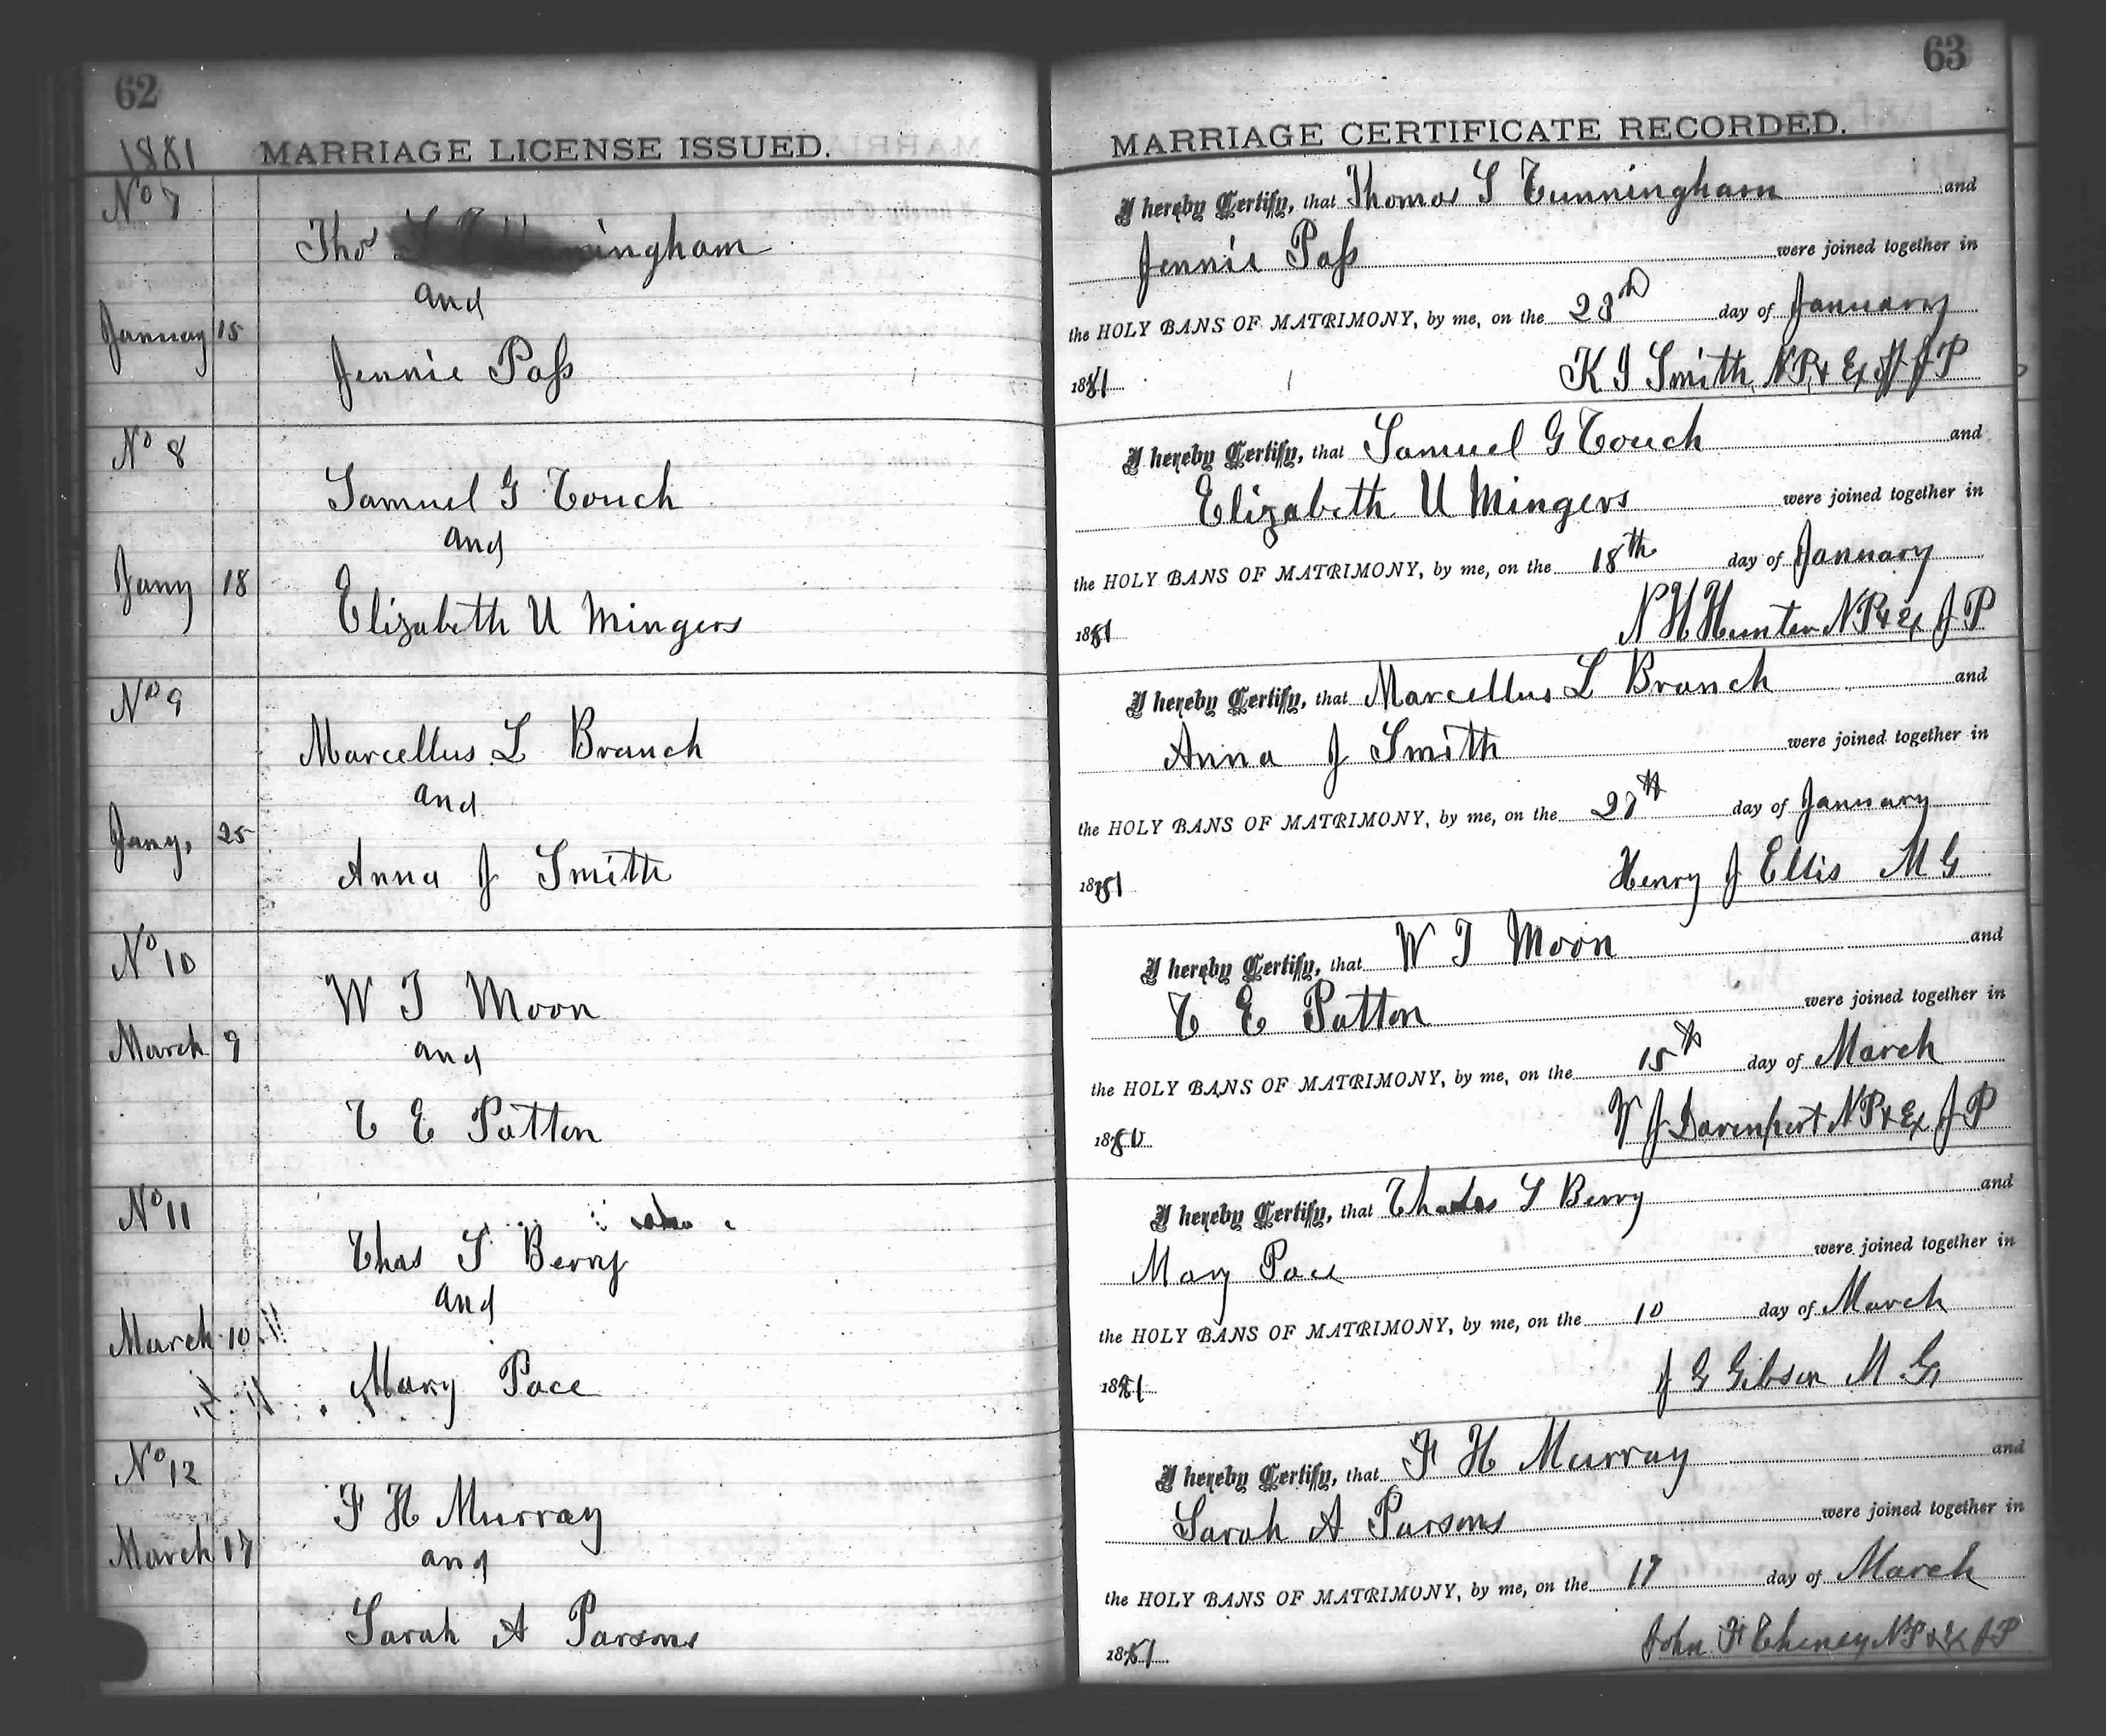 62
1881 MARRIAGE LICENSE ISSUED.
No 7
Thos ingham
and
January 15
Jennie Pass
No 8
Samuel G Couch
and
Jany 18
Elizabeth U Mingers
No 9
Marcellus L Branch
and
Jany, 25
Anna J Smith
No 10
W T Moon
March 9
and
C E Patton
No 11
Chas S Berry
and
March 10
Mary Pace
No 12
F H Murray
March 17
and
Sarah A Parsons
63
MARRIAGE CERTIFICATE RECORDED.
I hereby Certify, that Thomas S Cunningham and
Jennie Pass were joined together in
the HOLY BANS OF MATRIMONY, by me, on the day of January
1881 Smith NP & Ex off JP
I hereby Certify, that Samuel G Couch and
Elizabeth U Mingers were joined together in
the HOLY BANS OF MATRIMONY, by me, on the 18th day of January
1881 N H Hunter NP & Ex JP
I hereby Certify, that Marcellus L Branch and
Anna J Smith were joined together in
the HOLY BANS OF MATRIMONY, by me, on the 27th day of January
1881 Henry J Ellis M G
I hereby Certify, that W T Moon and
C E Patton were joined together in
the HOLY BANS OF MATRIMONY, by me, on the 15th day of March
W J Davenport NP & Ex JP
I hereby Certify, that Charles S Berry and
Mary Pace were joined together in
the HOLY BANS OF MATRIMONY, by me, on the 10 day of March
1881 J G Gibson M G
I hereby Certify, that F H Murray and
Sarah A Parsons were joined together in
the HOLY BANS OF MATRIMONY, by me, on the 17 day of March
1881 John F Cheney NP & Ex JP